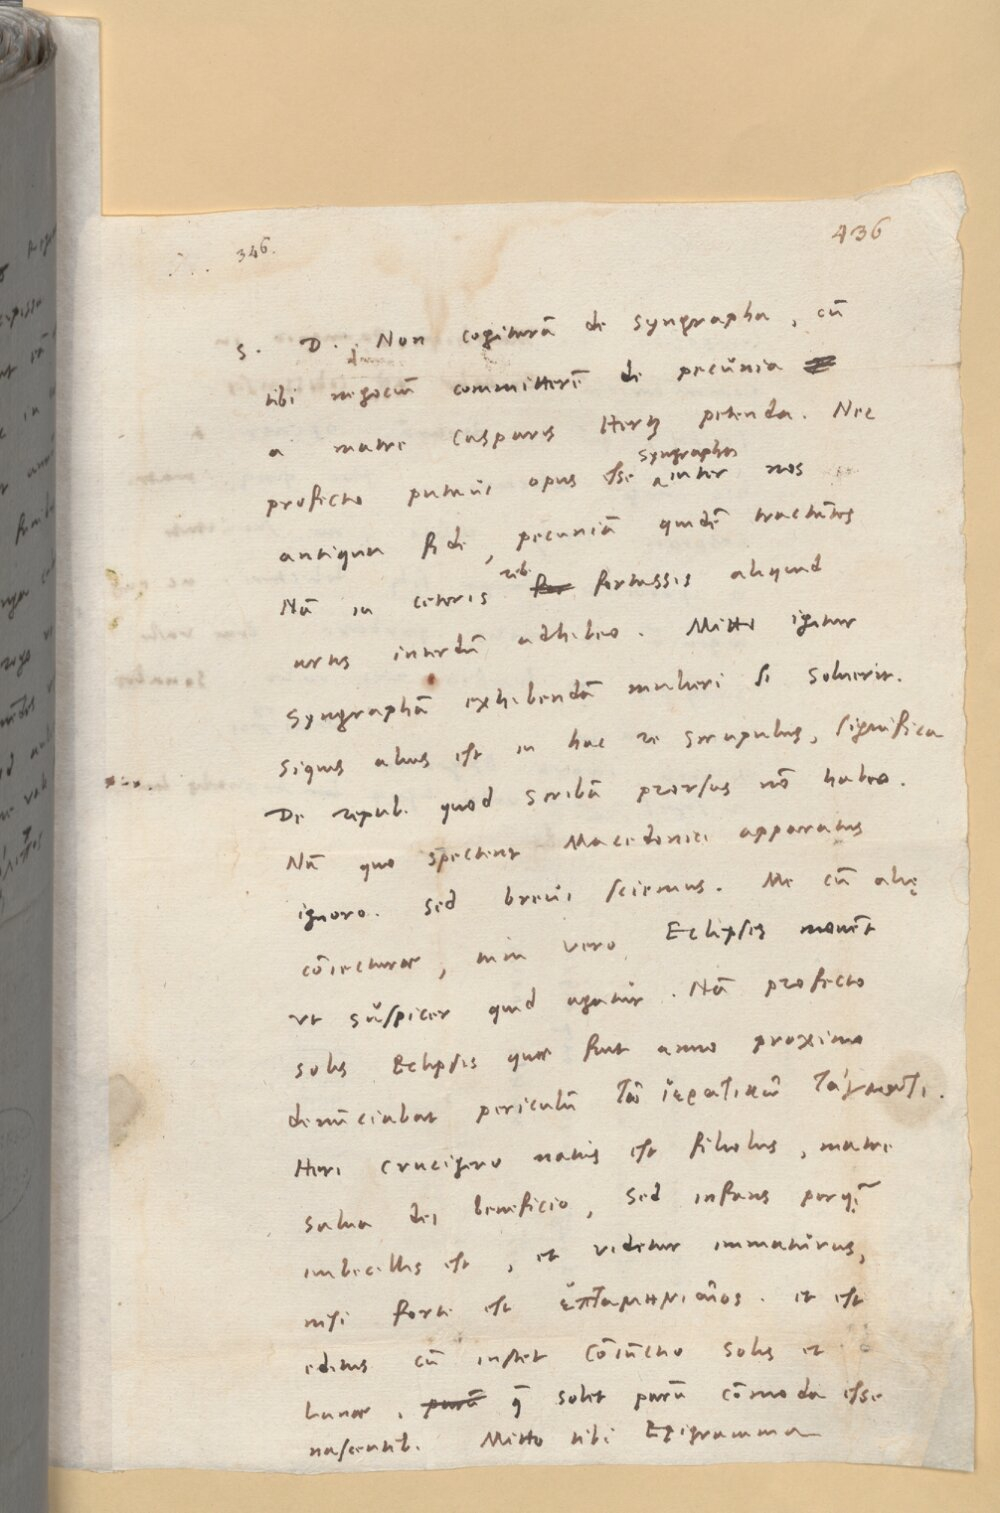 346.
436
S. D. Non cogitarā de syngrapha, cū
tibi negociū committerē de pecunia
a matre Casparis Hertz petenda. Nec
profecto putaui opus esse syngrapha inter nos
antiqua fide, pecuniā quidē tractātes
Nā in ceteris reb. fortassis aliquid
artis interdū adhibeo. Mitto igitur
syngraphā exhibendā mulieri si soluerit.
Siquis alius est in hac re scrupulus, significa
De repub. quod scribā prorsus nō habeo.
Nā quo spectent Macedonici apparatus
ignoro. Sed breui sciemus. Me cū alię
cōiecturae, tum vero Eclipses mouēt
vt suspicer quid agatur. Nā profecto
solis Eclipsis quae fuit anno proximo
denūciabat periculū τῶ ἱερατικῶ τάγματι.
Heri Crucigero natus est filiolus, matre
salua dei beneficio, sed infans perq̄
imbecillis est, et videtur immaturus,
nisi forte est ἑπταμηνιαῖος. et est
editus cū instet cōiūctio solis et
lunae, q̄ solet parū cōmoda esse
nascentib. Mitto tibi Epigramma